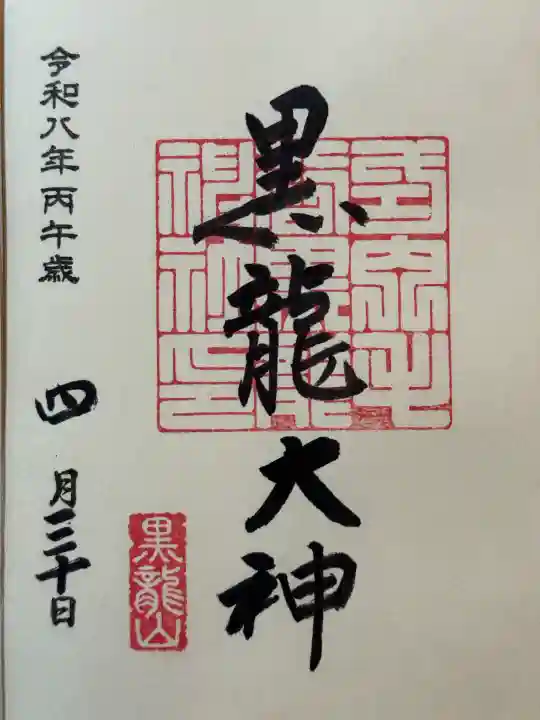 黒龍大神
黒龍山
令和八年丙午歳
四月三十日